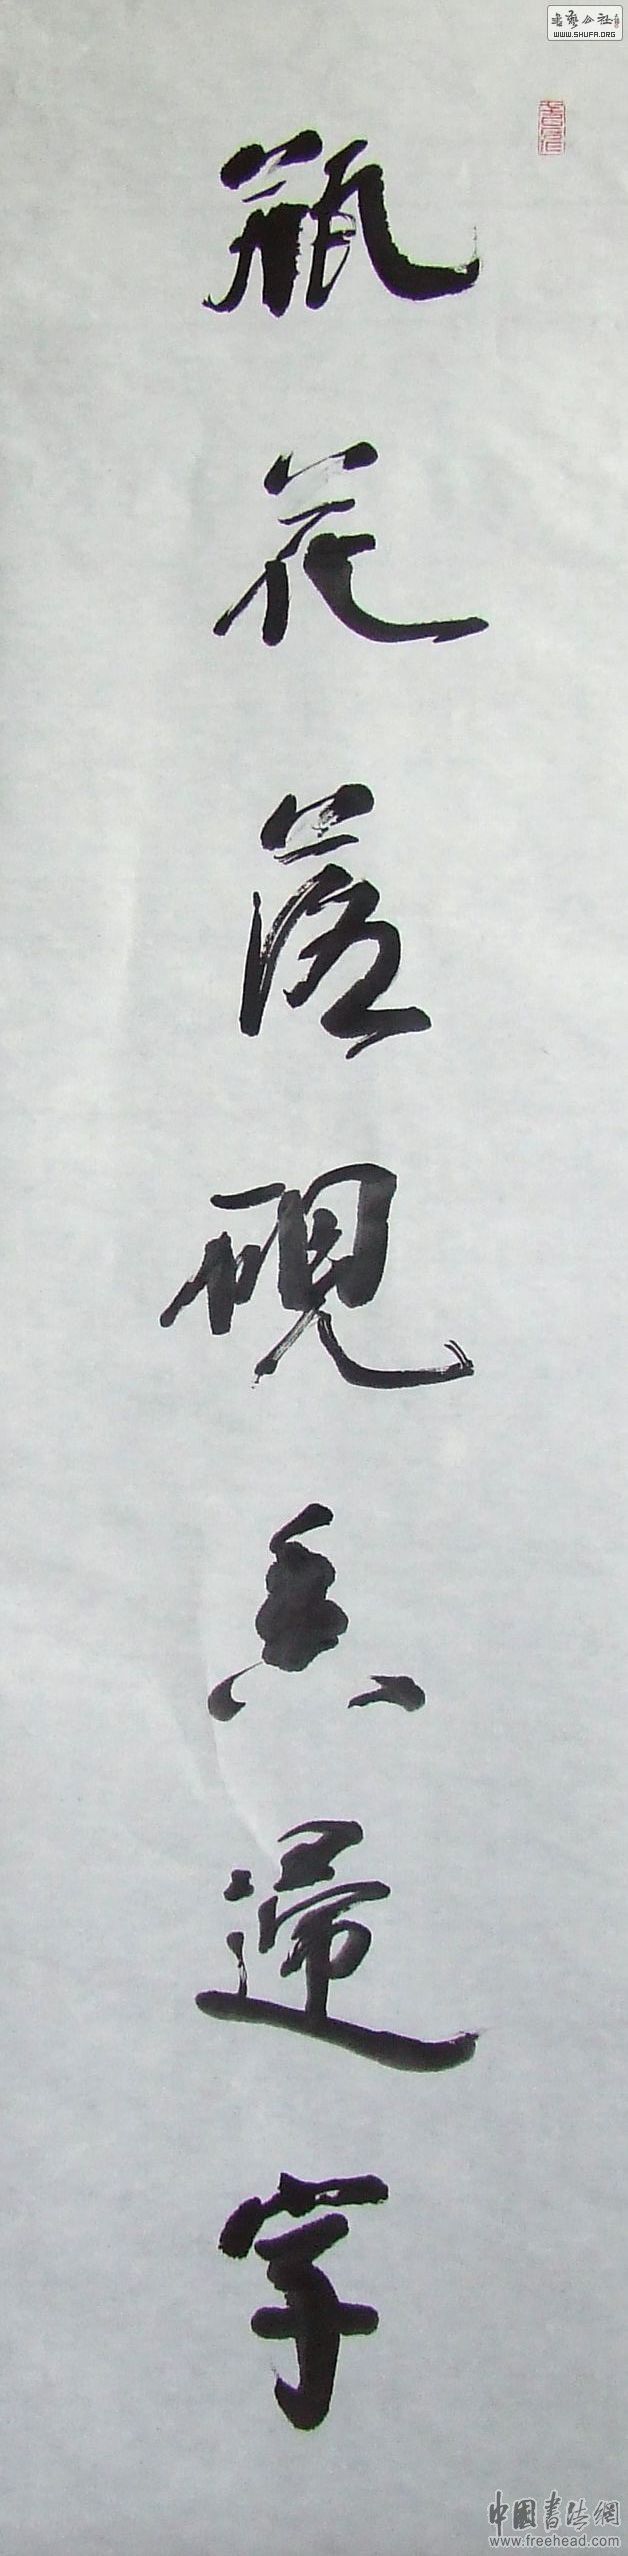 书艺公社
WWW.SHUFA.ORG
瓶花落硯香歸字
中國書法網
www.freehead.com